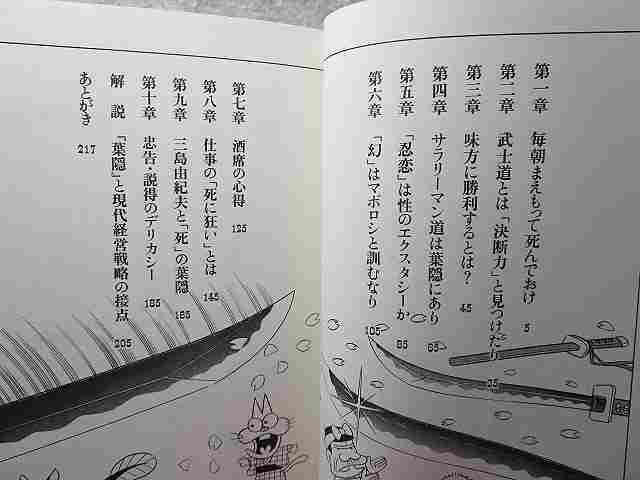 第一章 毎朝まえもって死んでおけ 5
第二章 武士道とは「決断力」と見つけたり 25
第三章 味方に勝利するとは? 45
第四章 サラリーマン道は葉隠にあり 65
第五章 「忍恋」は性のエクスタシーか 85
第六章 「幻」はマボロシと訓むなり 105
第七章 酒席の心得 125
第八章 仕事の「死に狂い」とは 145
第九章 三島由紀夫と「死」の葉隠 165
第十章 忠告・説得のデリカシー 185
解説 「葉隠」と現代経営戦略の接点 205
あとがき 217